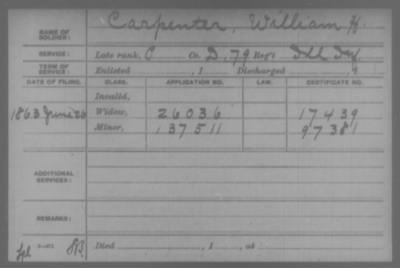 NAME OF SOLDIER: Carpenter, William H.
SERVICE: Late rank, C Co. D, 79 Reg't Ill. Inf
TERM OF SERVICE: Enlisted , 1 Discharged , 1
DATE OF FILING. CLASS. APPLICATION NO. LAW. CERTIFICATE NO.
Invalid,
1863 June 26 Widow, 26036 17439
Minor, 137511 97381
ADDITIONAL SERVICES:
REMARKS:
Died , 1 , at